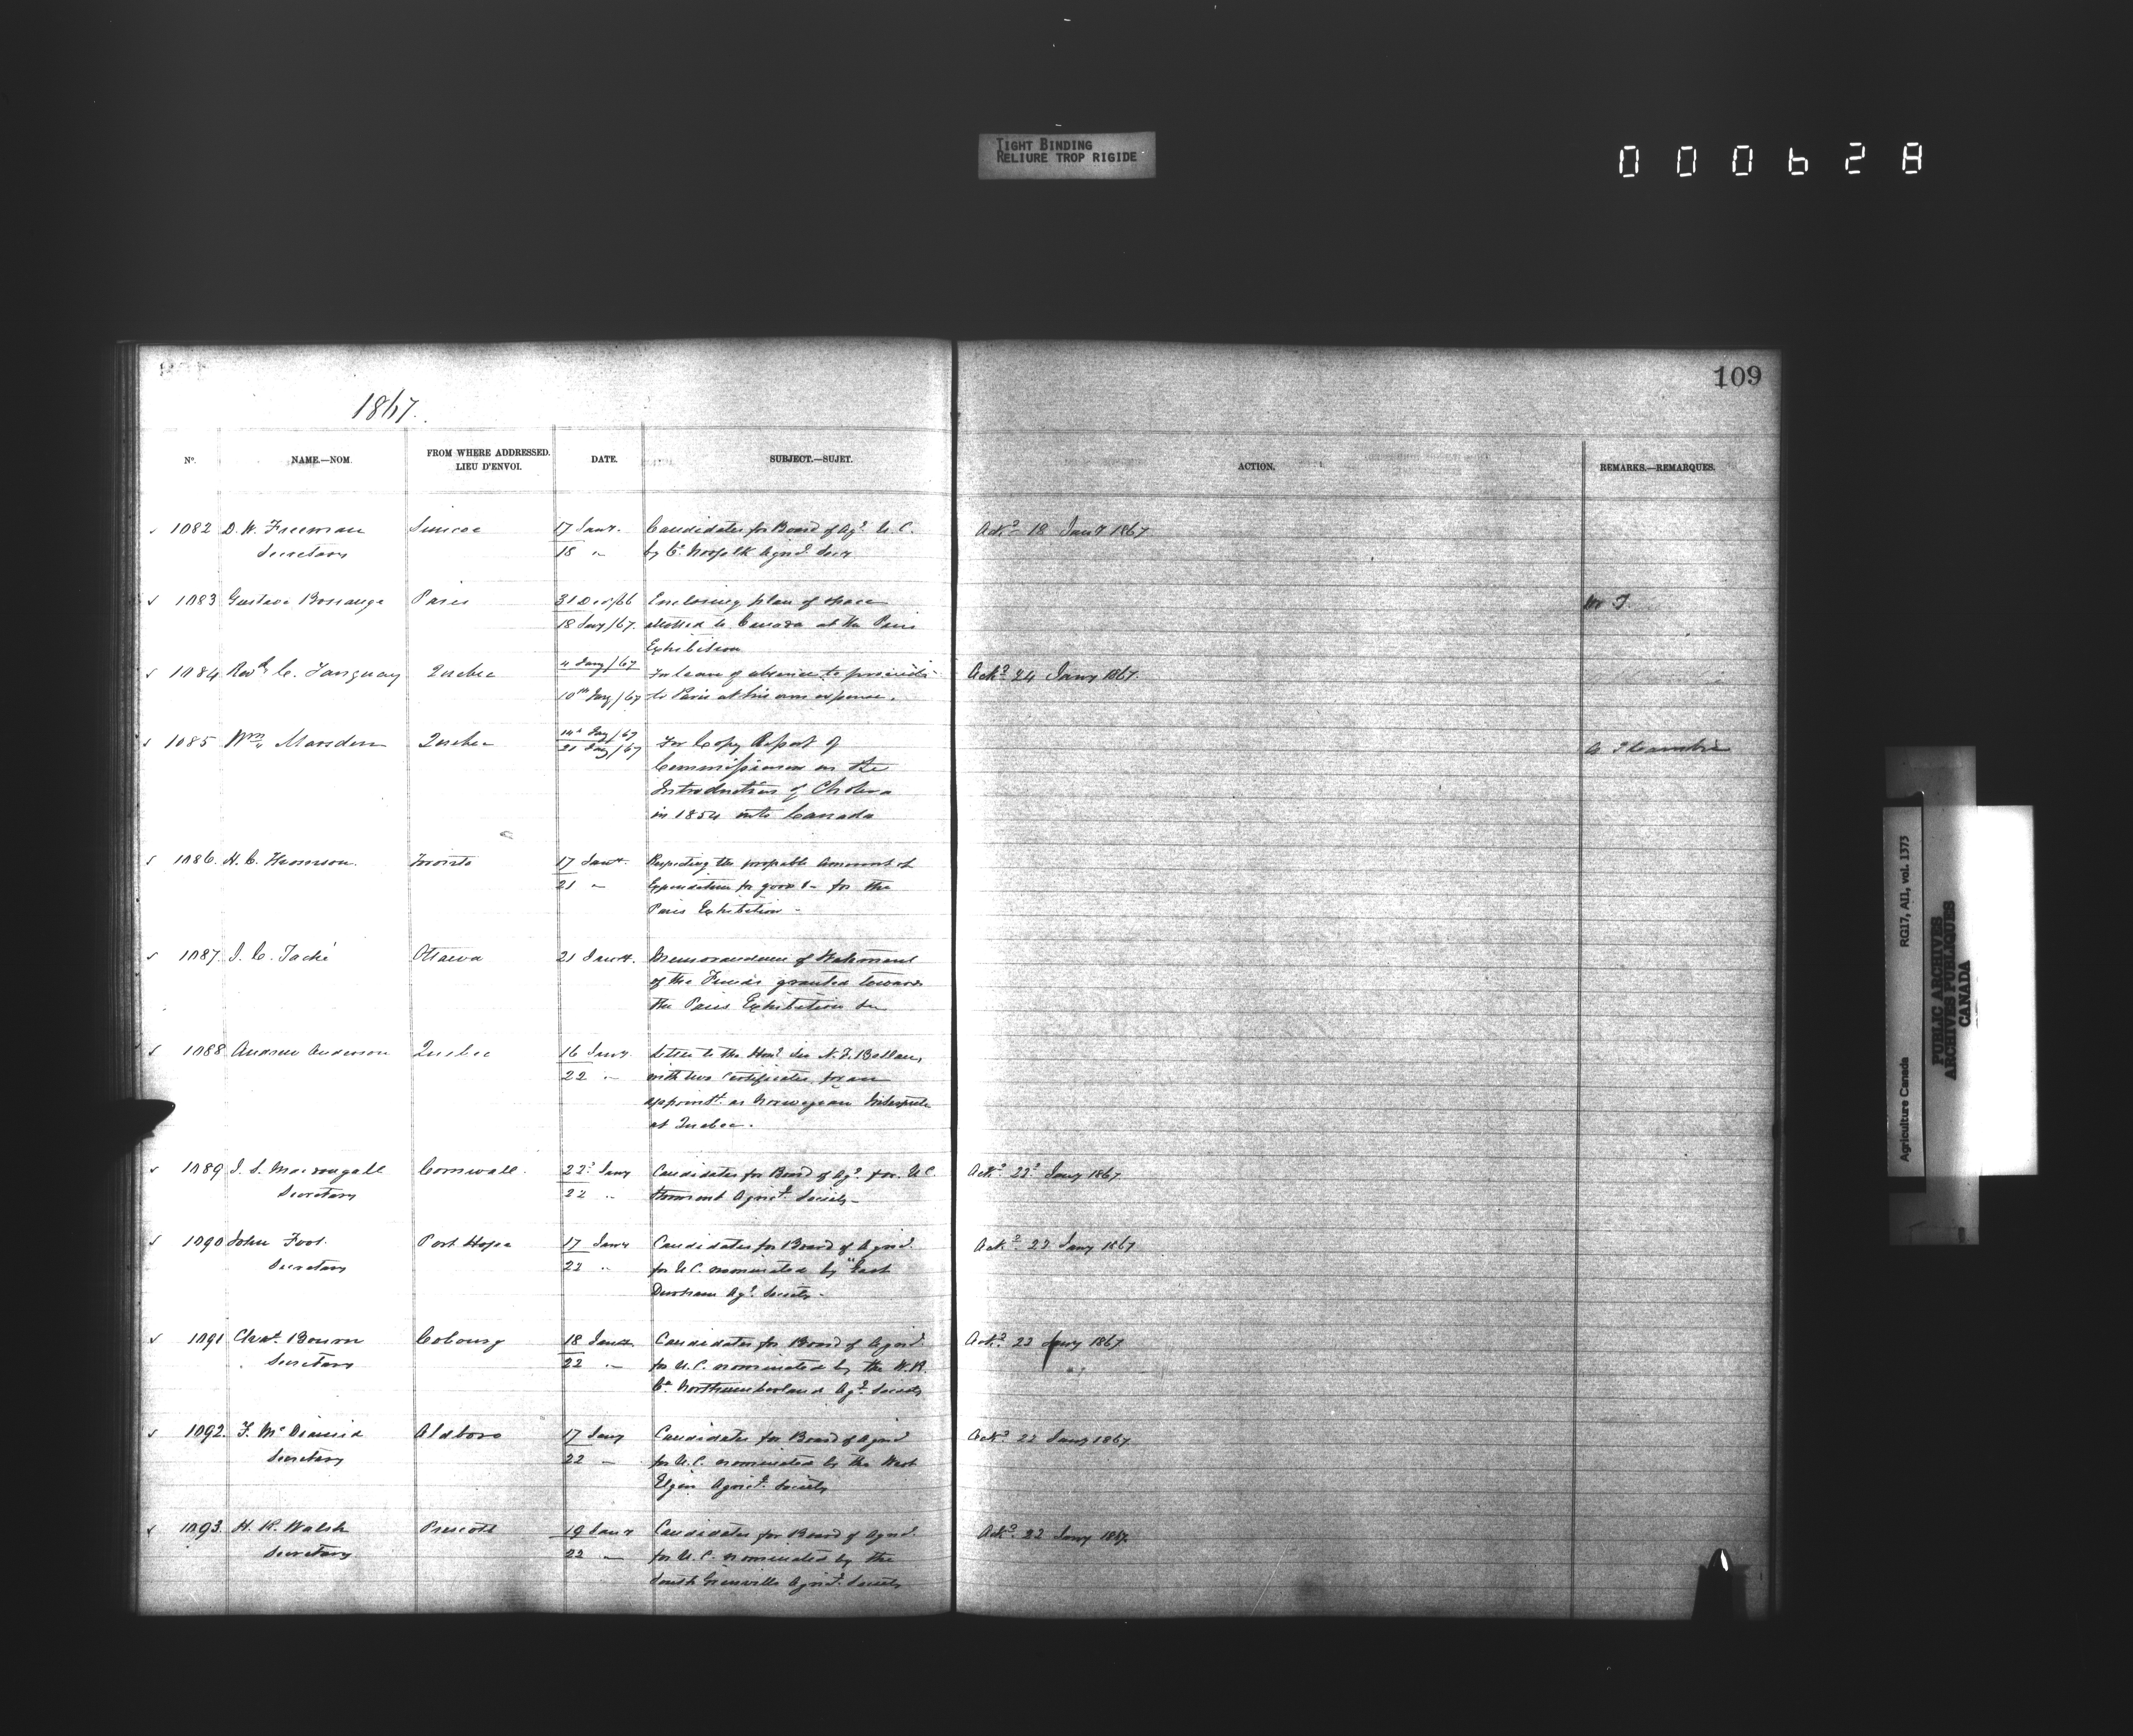 TIGHT BINDING
RELIURE TROP RIGIDE
000628
109
1867.
No. NAME.—NOM. FROM WHERE ADDRESSED. LIEU D'ENVOI. DATE. SUBJECT.—SUJET. ACTION. REMARKS.—REMARQUES.
1082 D. W. Freeman Simcoe 17 Jany. Candidates for Board of Agr. U. C. Ackd 18 Jany 1867
Secretary 18 " by Co. Norfolk Agricl. Socy
1083 Gustave Bossange Paris 31 Dec/66 Enclosing plan of space Mr T.
18 Jany/67. allotted to Canada at the Paris
Exhibition
1084 Revd C. Tanguay Quebec 4 Jany/67 For leave of absence to proceed Ackd 24 Jany 1867.
10th Jany/67 to Paris at his own expense.
1085 Wm. Marsden Quebec 14th Jany/67
21 Jany/67 For Copy Report of
Commissioners on the
Introduction of Cholera
in 1854 into Canada
1086. H. C. Thomson. Toronto 17 Jany. Respecting the probable amount of
21 " Expenditure for goods for the
Paris Exhibition -
1087. J. C. Taché Ottawa 21 Jany. Memorandum of Statement
of the Funds granted towards
the Paris Exhibition
1088 Andrew Anderson Quebec 16 Jany. Letter to the Honl. Sir N. F. Belleau,
22 " with two Certificates, for an
appointt. as Norwegian Interpreter
at Quebec.
1089 Macdougall Cornwall. 22d Jany Candidates for Board of Agr. for U. C. Ackd. 22d Jany 1867.
Secretary 22 " Stormont Agricl. Society -
1090 John Foot. Port Hope 17 Jany Candidates for Board of Agricl. Ackd. 22 Jany 1867
Secretary 22 " for U. C. nominated by East
Durham Agl. Society -
1091 Chas. Bourn Cobourg 18 Jany Candidates for Board of Agricl. Ackd. 22 Jany 1867
Secretary 22 " for U. C. nominated by the W. R.
Co. Northumberland Agl. Society
1092. F. McDiarmid Aldboro 17 Jany Candidates for Board of Agricl Ackd 22 Jany 1867
Secretary 22 " for U. C. nominated by the West
Elgin Agricl. Society
1093. H. R. Walsh Prescott 19 Jany Candidates for Board of Agricl. Ackd. 22 Jany 1867.
Secretary 22 " for U. C. nominated by the
South Grenville Agricl. Society
Agriculture Canada RG17, AII, vol. 1373
PUBLIC ARCHIVES
ARCHIVES PUBLIQUES
CANADA